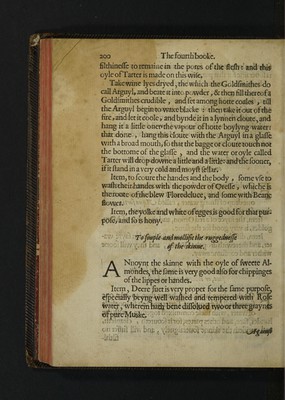 200 The fourth booke.
filthinesse to remaine in the pores of the flesh: and this
oyle of Tarter is made on this wise.
Take wine lyes dryed, the which the Goldsmithes do
call Arguyl, and beate it into powder, & then fill thereof a
Goldsmithes crusible, and set among hotte coales, till
the Arguyl begin to waxe blacke: then take it out of the
fire, and let it coole, and bynde it in a lynnen cloute, and
hang it a litle ouer the vapour of hotte boylyng water:
that done, hang this cloute with the Arguyl in a glasse
with a broad mouth, so that the bagge or cloute touch not
the bottome of the glasse, and the water or oyle called
Tarter will drop downe a litle and a litle: and the sooner,
if it stand in a very cold and moyst cellar.
Item, to scoure the handes and the body, some vse to
wash their handes with the powder of Oresse, whiche is
the roote of the blew Floredeluce, and some with Beane
flower.
Item, the yolke and white of egges is good for this pur-
pose, and so is hony.
To souple and mollifie the ruggednesse
of the skinne.
ANnoynt the skinne with the oyle of sweete Al-
mondes, the same is very good also for chippinges
of the lippes or handes.
Item, Deere suet is very proper for the same purpose,
especially beyng well washed and tempered with Rose
water, wherein hath bene dissolued two or three graynes
of pure Muske.